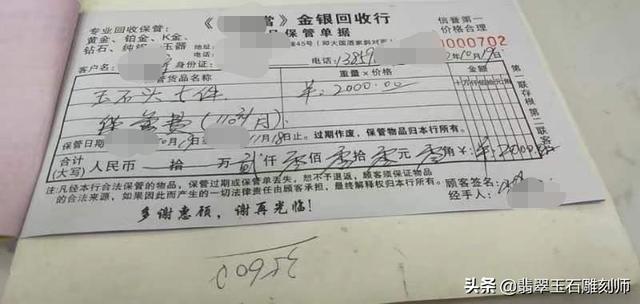 專业回收保管:
《 當》金银回收行
信誉第一
黄金、铂金、K金、
品保管单据
价格合理
钻石、纯 玉器
45号(
电话:
电话: 13859
0000702
客户名 身份证:
10月19日
管货品名称
重量×价格
金额
玉石头七件
羊:2000.00
保管费(1个月)
第一联存根 第二联客
保管日期
11月18日止。过期作废,保管物品归本行所有。
合计(大写) 人民币 拾 万 贰仟零佰零拾零元零角 羊:2000.00
注:凡经本行合法保管的物品,保管过期或保管单丢失,恕不予退返,顾客须保证物品
的合法来源,如果因此而产生的一切法律责任由顾客承担,最终解释权归本行所有。
顾客签名:
经手人:
多谢惠顾,谢再光临!
头条 @翡翠玉石雕刻师